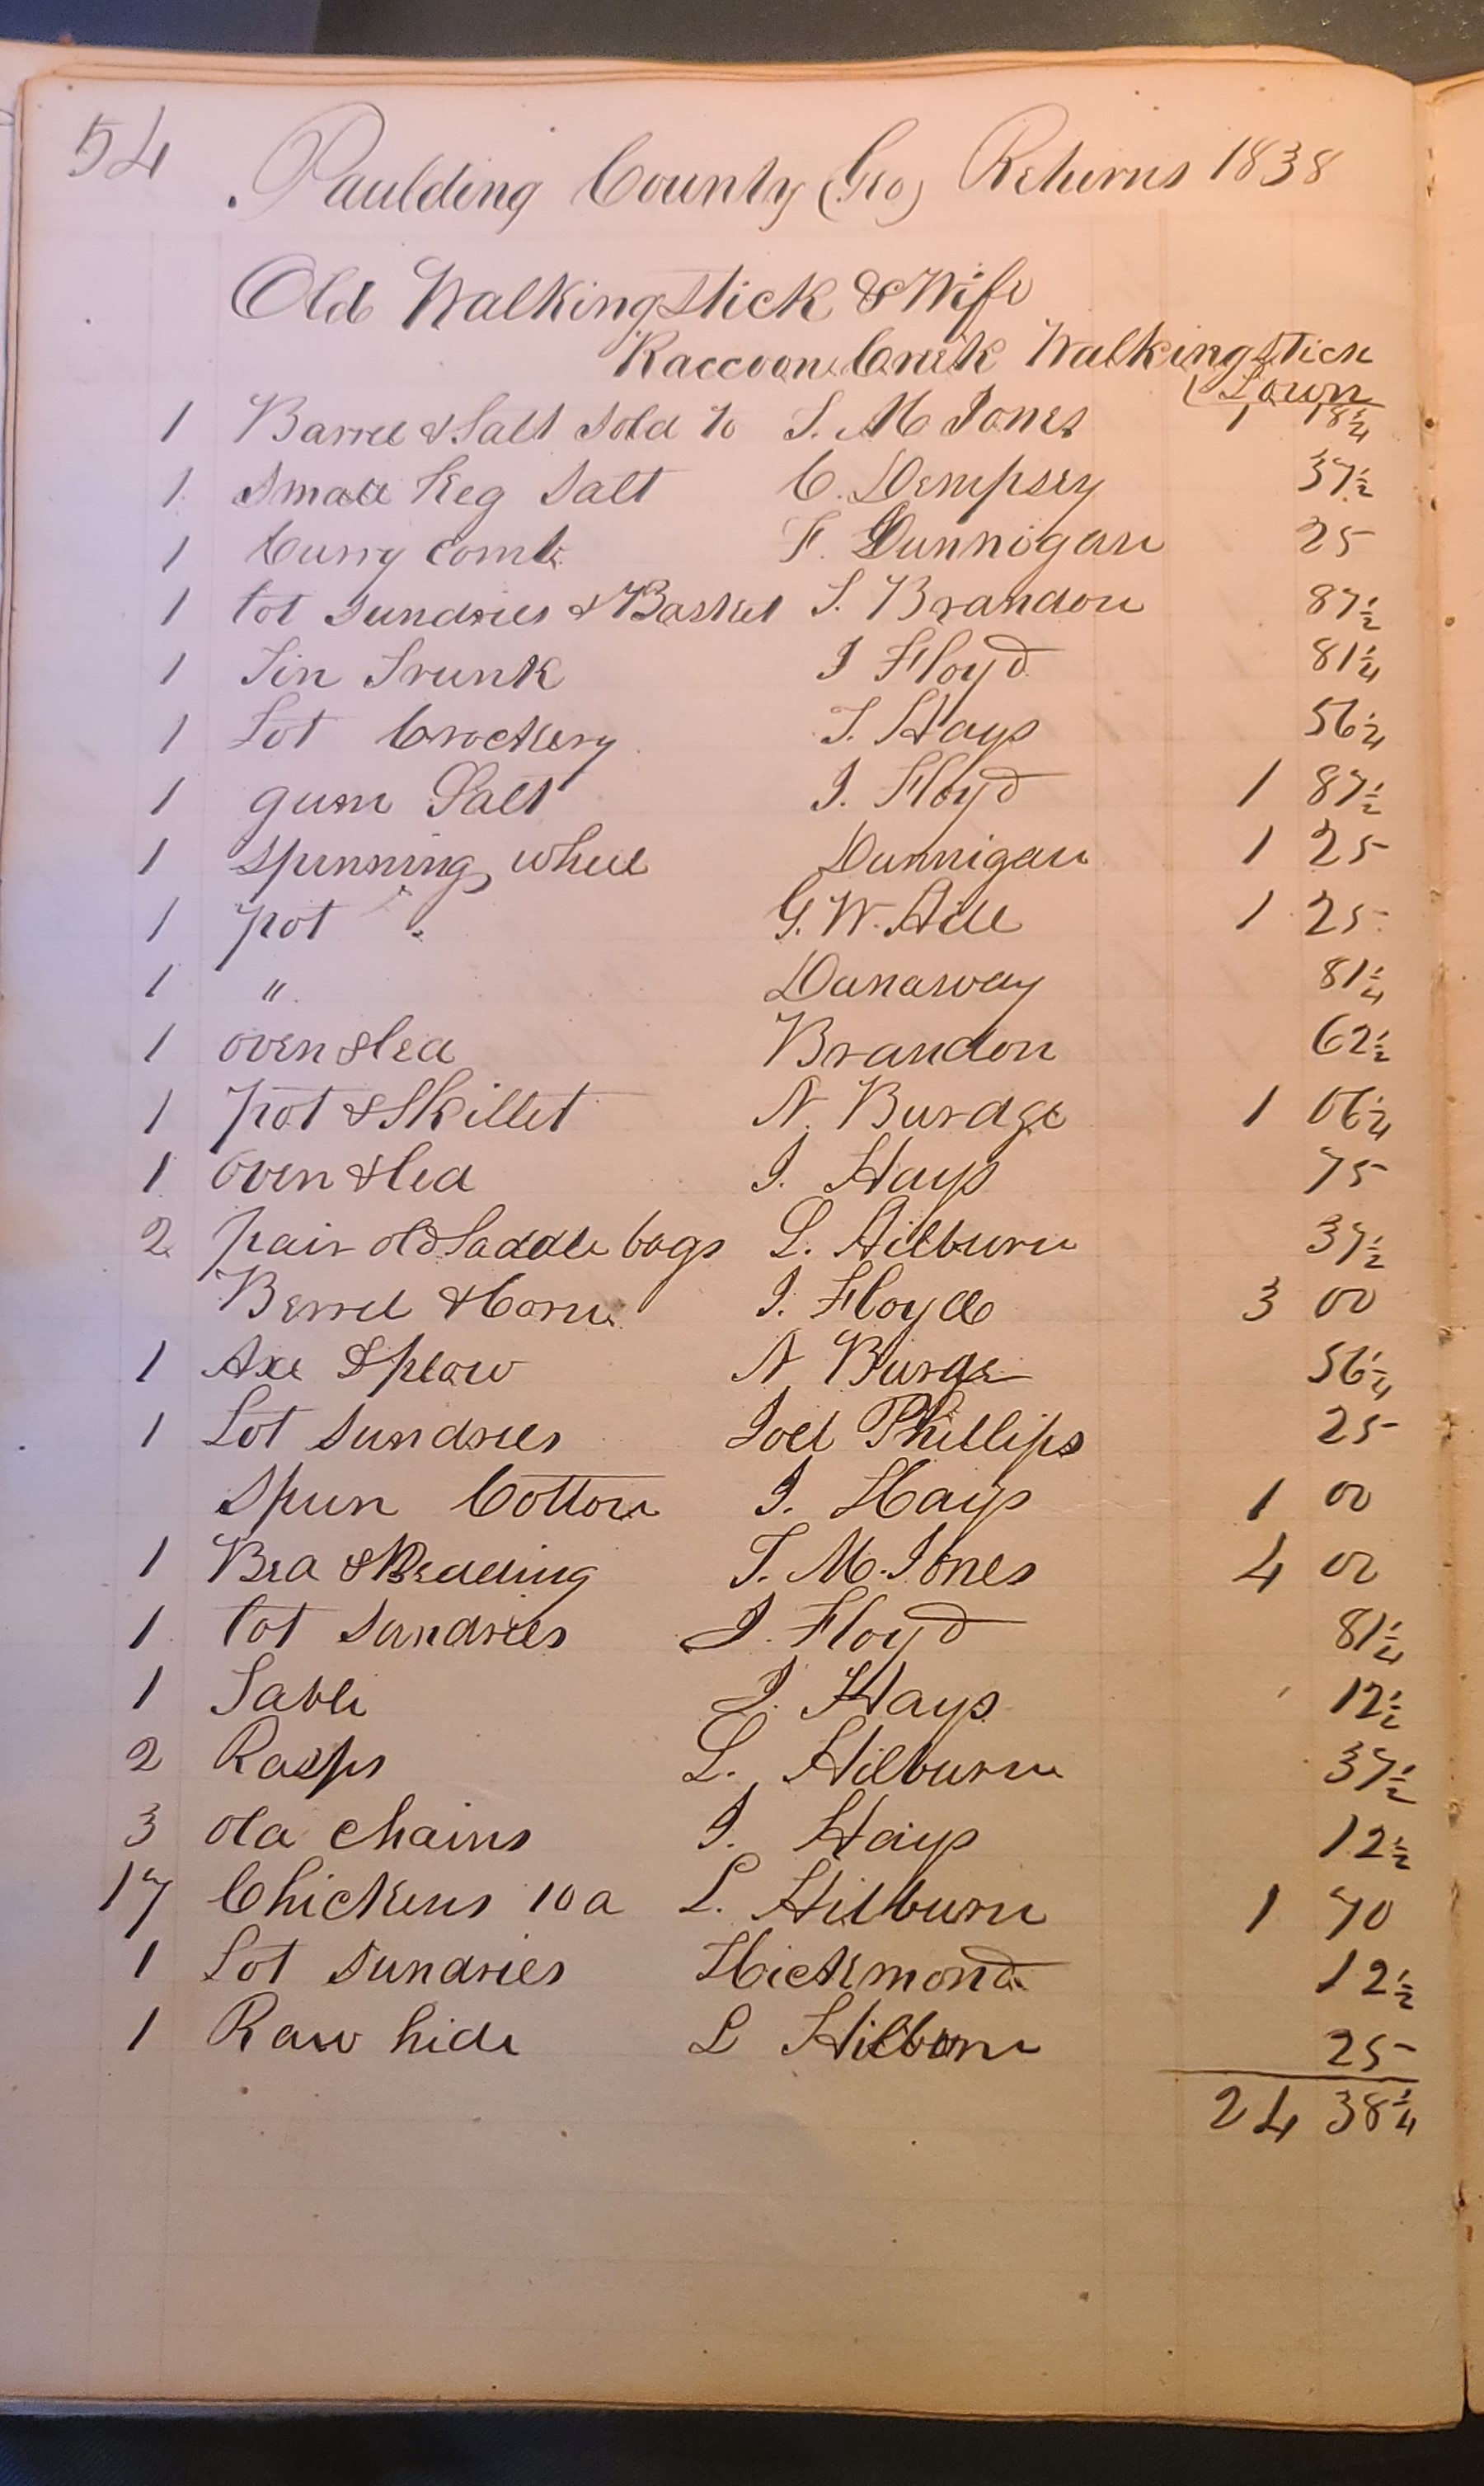 54
Paulding County (Geo) Returns 1838
Old Walkingstick & Wife
Raccoon Creek Walkingstick
Town
1 Barrel & Salt Sold to T. M Jones 1 18 3/4
1 Small Keg Salt C. Dempsey 37 1/2
1 Curry Comb F. Dunnigan 25
1 Lot Sundries & Basket T. Brandon 87 1/2
1 Tin Trunk J Floyd 81 1/4
1 Lot Crockery J. Hays 56 1/4
1 gum Salt J. Floyd 1 87 1/2
1 Spinning wheel Dunnigan 1 25
1 pot " G. W. Hill 1 25
1 " Danaway 81 1/4
1 oven & led Brandon 62 1/2
1 pot & Skillet N. Burdge 1 06 1/4
1 oven & led J. Hays 75
2 pair old Saddle bags L. Hilburn 37 1/2
Berrel & Corn J. Floyd 3 00
1 Axe & plow N Burge 56 1/4
1 Lot Sundries Joel Phillips 25
Spun Cotton J. Hays 1 00
1 Bed & Bedding T. M. Jones 4 00
1 Lot Sundries J. Floyd 81 1/4
1 Table J. Hays 12 1/2
2 Rasps L. Hilburn 37 1/2
3 old chains J. Hays 12 1/2
17 Chickens 10 a L. Hilburn 1 70
1 Lot Sundries Hickmond 12 1/2
1 Raw hide L Hilborn 25
24 38 3/4